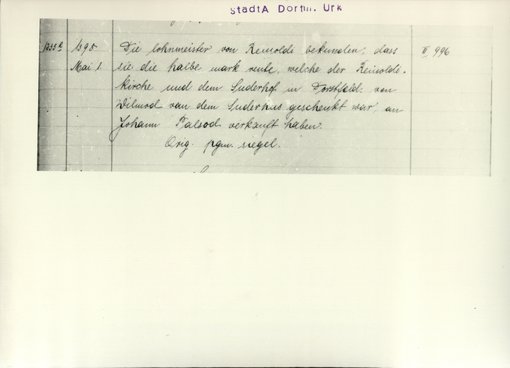 StadtA Dortm. Urk
1395 Die lohnmeister von Reinolde bekunden, dass II, 996
Mai 1 sie die halbe mark rente, welche der Reinolde-
kirche und dem Suderhof in Dorstfelde von
von dem Suderhus geschenkt war, an
Johann verkauft haben.
Orig. pgm. siegel.